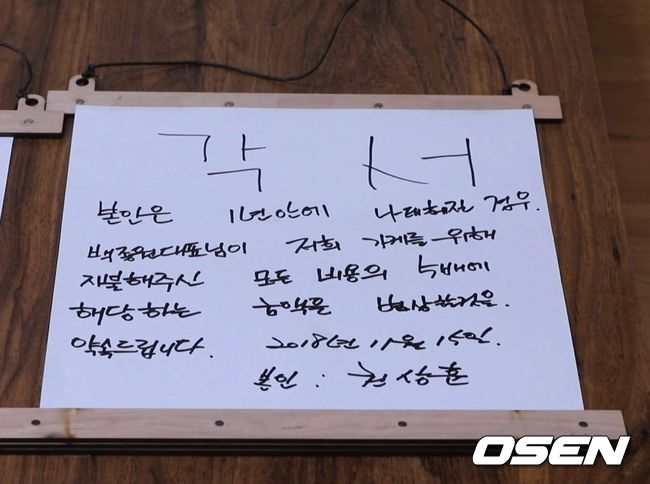 각 서
본인은 1년안에 나태해질 경우.
백종원대표님이 저희 가게를 위해
지불해주신 모든 비용의 5배에
해당 하는 금액을 변상할것을.
약속드립니다. 2018년 11월 15일.
본인 : 권상훈
OSEN